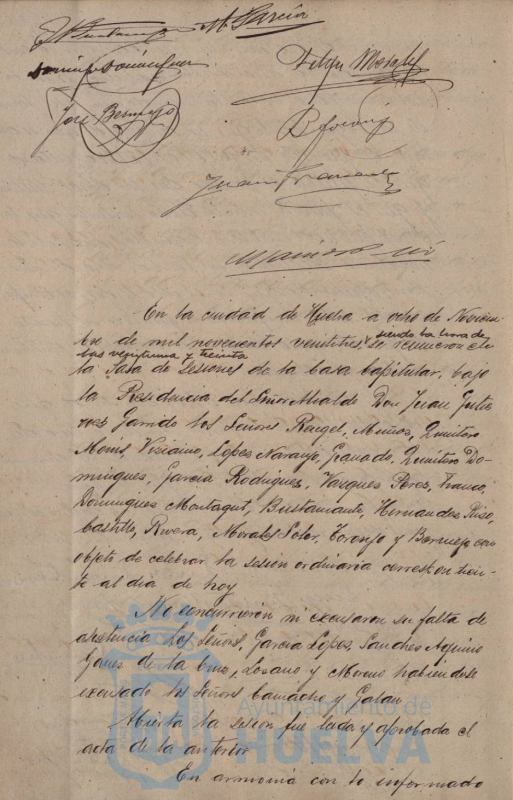 M. García
José Bermejo
En la ciudad de Huelva a ocho de Noviem-
bre de mil novecientos veintitres, siendo la hora de
las veintiuna y treinta se reunieron en
la Sala de Sesiones de la Casa Capitular, bajo
la Presidencia del Señor Alcalde Don Juan Gutie
rrez Garrido los Señores Rengel, Muñoz, Quintero
Monís, Vizcaino, López Naranjo, Granado, Quintero Do-
minguez, García Rodriguez, Vazquez Perez, Franco,
Dominguez Montagut, Bustamante, Hernandez Pinzo
Castillo, Rivera, Morales Soler, Toronjo y Bermejo con
objeto de celebrar la sesión ordinaria correspondien-
te al dia de hoy
No concurrieron ni excusaron su falta de
asistencia los Señores, García López, Sanchez Aquino
Gomez de la Cruz, Lozano y Moreno habiendose
excusado los Señores Camacho y Galan
Abierta la sesión fue leida y aprobada el
acta de la anterior
En armonia con lo informado
Ayuntamiento de
HUELVA